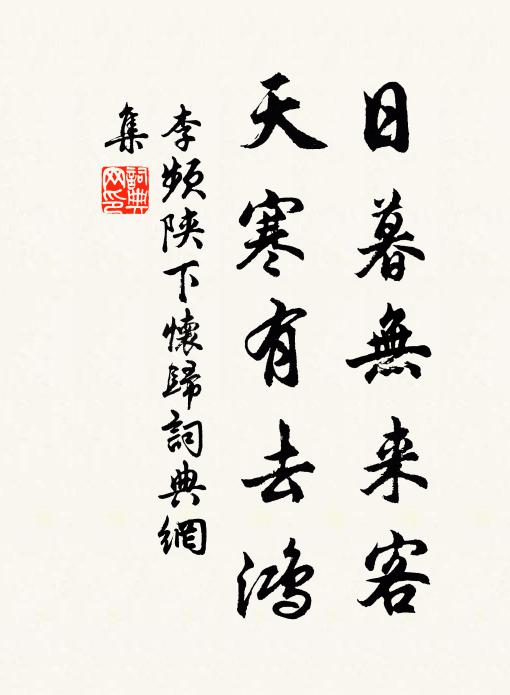 日暮無来客
天寒有去鴻
李频陕下懷歸詞典網
集
詞典
网印